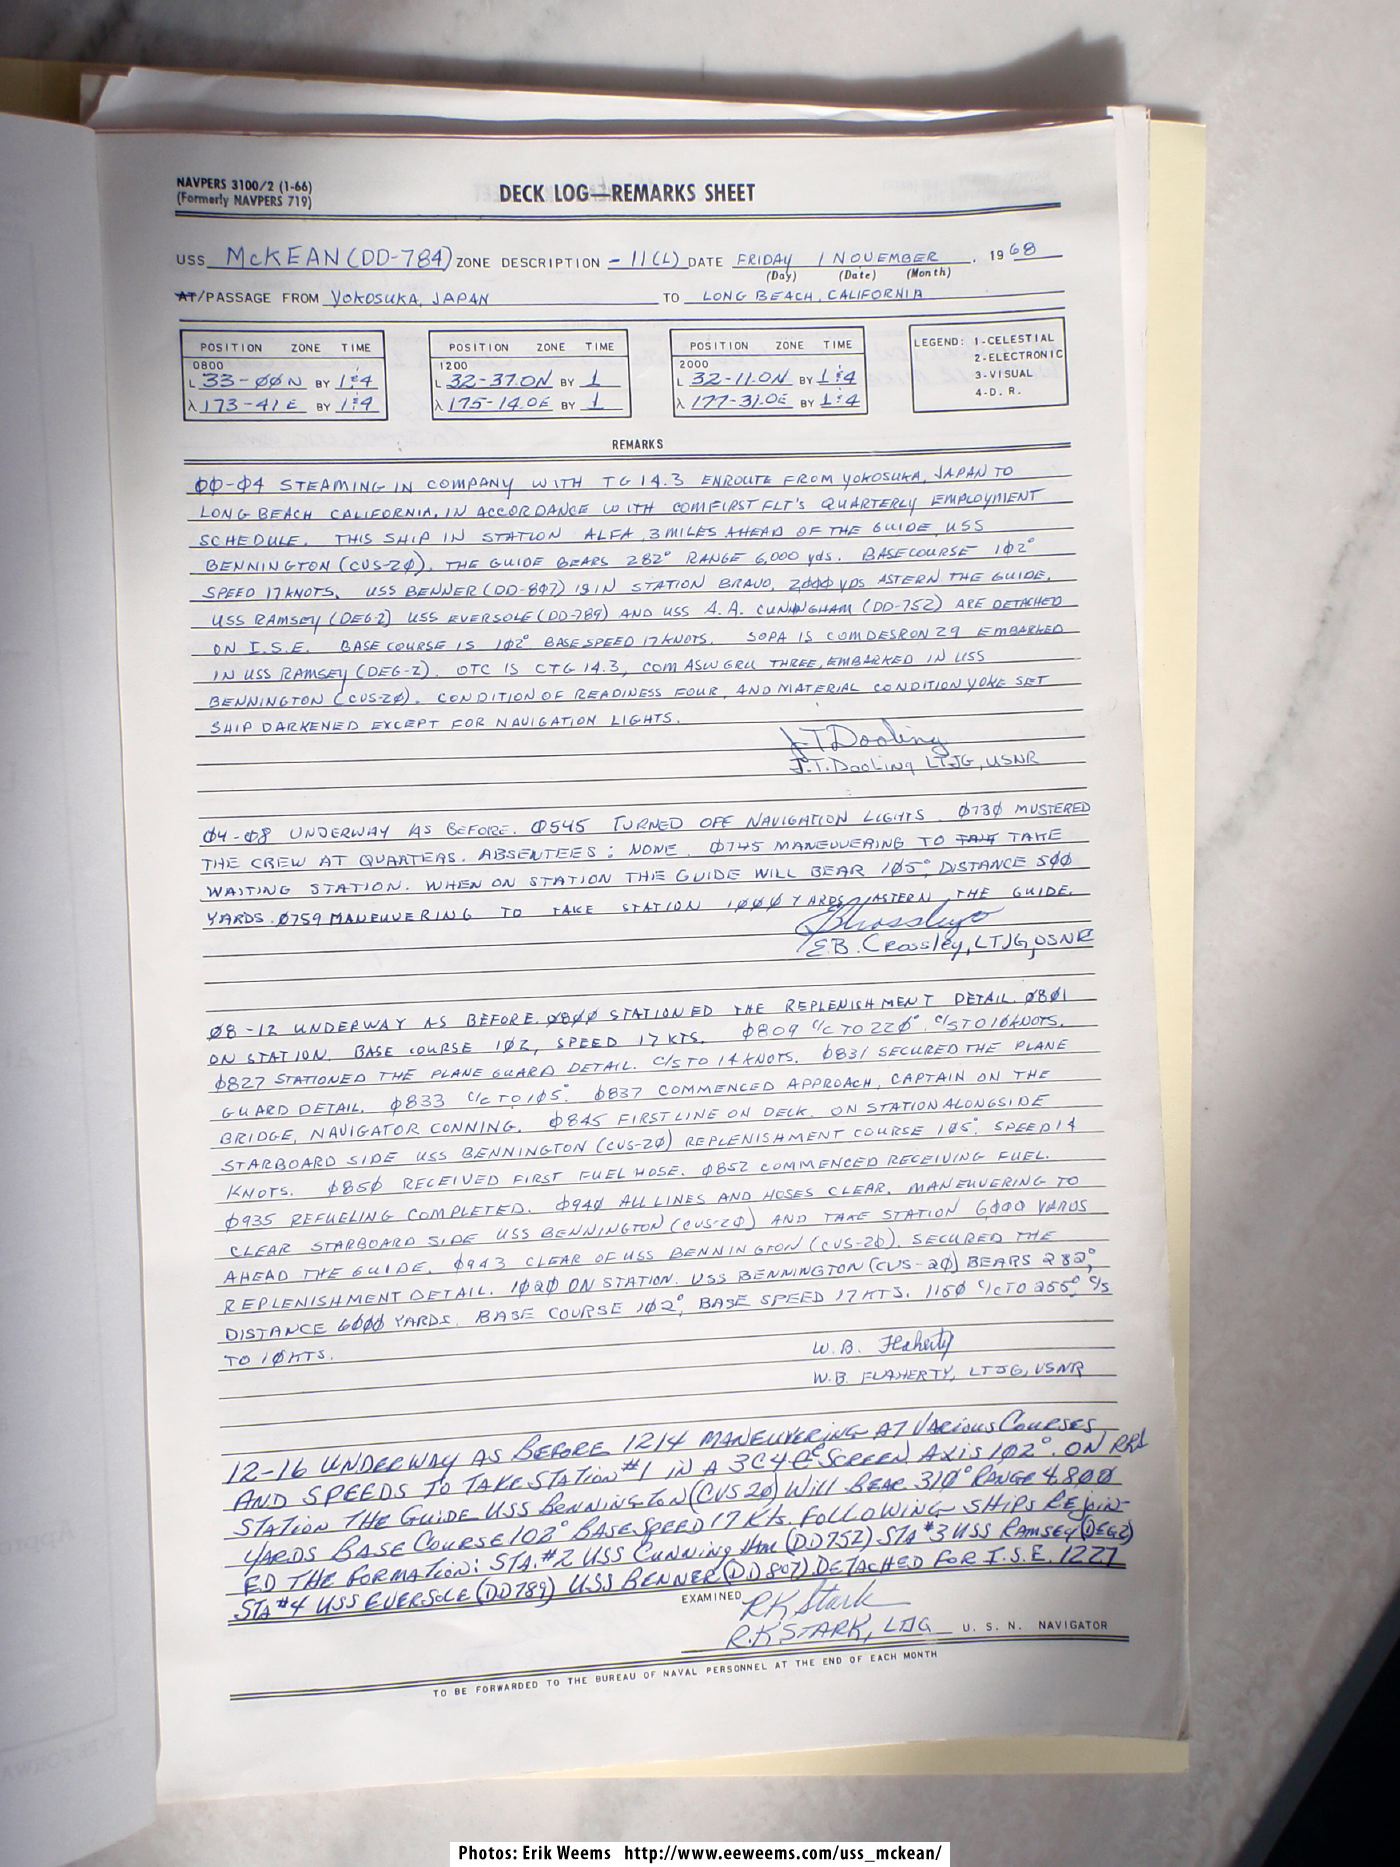 NAVPERS 3100/2 (1-66)
(Formerly NAVPERS 719)
DECK LOG—REMARKS SHEET
USS McKEAN (DD-784) ZONE DESCRIPTION - 11(L) DATE FRIDAY 1 NOVEMBER, 1968
(Day) (Date) (Month)
AT/PASSAGE FROM YOKOSUKA, JAPAN TO LONG BEACH, CALIFORNIA
POSITION ZONE TIME
0800
L 33-00 N BY 1&4
λ 173-41 E BY 1&4
POSITION ZONE TIME
1200
L 32-37.0N BY 1
λ 175-14.0E BY 1
POSITION ZONE TIME
2000
L 32-11.0N BY 1&4
λ 177-31.0E BY 1&4
LEGEND: 1-CELESTIAL
2-ELECTRONIC
3-VISUAL
4-D. R.
REMARKS
00-04 STEAMING IN COMPANY WITH TG 14.3 ENROUTE FROM YOKOSUKA, JAPAN TO
LONG BEACH CALIFORNIA, IN ACCORDANCE WITH COMFIRST FLT'S QUARTERLY EMPLOYMENT
SCHEDULE. THIS SHIP IN STATION ALFA, 3 MILES AHEAD OF THE GUIDE, USS
BENNINGTON (CVS-20). THE GUIDE BEARS 282° RANGE 6,000 yds. BASE COURSE 102°
SPEED 17 KNOTS. USS BENNER (DD-807) IS IN STATION BRAVO, 2000 YDS ASTERN THE GUIDE.
USS RAMSEY (DEG-2) USS EVERSOLE (DD-789) AND USS A. A. CUNNINGHAM (DD-752) ARE DETACHED
ON I.S.E. BASE COURSE IS 102° BASE SPEED 17 KNOTS. SOPA IS COMDESRON 29 EMBARKED
IN USS RAMSEY (DEG-2). OTC IS CTG 14.3, COM ASW GRU THREE, EMBARKED IN USS
BENNINGTON (CVS-20). CONDITION OF READINESS FOUR, AND MATERIAL CONDITION YOKE SET
SHIP DARKENED EXCEPT FOR NAVIGATION LIGHTS.
J.T. Dooling
J.T. Dooling LTJG, USNR
04-08 UNDERWAY AS BEFORE. 0545 TURNED OFF NAVIGATION LIGHTS. 0730 MUSTERED
THE CREW AT QUARTERS. ABSENTEES: NONE. 0745 MANEUVERING TO TAKE
WAITING STATION. WHEN ON STATION THE GUIDE WILL BEAR 105°, DISTANCE 500
YARDS. 0759 MANEUVERING TO TAKE STATION 1000 YARDS ASTERN THE GUIDE.
E B Crossley
E.B. Crossley, LTJG, USNR
08-12 UNDERWAY AS BEFORE. 0800 STATIONED THE REPLENISHMENT DETAIL. 0801
ON STATION. BASE COURSE 102, SPEED 17 KTS. 0809 C/C TO 220°. C/S TO 10 KNOTS.
0827 STATIONED THE PLANE GUARD DETAIL. C/S TO 14 KNOTS. 0831 SECURED THE PLANE
GUARD DETAIL. 0833 C/C TO 105°. 0837 COMMENCED APPROACH, CAPTAIN ON THE
BRIDGE, NAVIGATOR CONNING. 0845 FIRST LINE ON DECK. ON STATION ALONGSIDE
STARBOARD SIDE USS BENNINGTON (CVS-20) REPLENISHMENT COURSE 105°, SPEED 14
KNOTS. 0850 RECEIVED FIRST FUEL HOSE. 0852 COMMENCED RECEIVING FUEL.
0935 REFUELING COMPLETED. 0940 ALL LINES AND HOSES CLEAR. MANEUVERING TO
CLEAR STARBOARD SIDE USS BENNINGTON (CVS-20) AND TAKE STATION 6000 YARDS
AHEAD THE GUIDE. 0943 CLEAR OF USS BENNINGTON (CVS-20). SECURED THE
REPLENISHMENT DETAIL. 1020 ON STATION. USS BENNINGTON (CVS-20) BEARS 282°,
DISTANCE 6000 YARDS. BASE COURSE 102°, BASE SPEED 17 KTS. 1150 C/C TO 255°, C/S
TO 10 KTS.
W. B. Flaherty
W. B. FLAHERTY, LTJG, USNR
12-16 UNDERWAY AS BEFORE 1214 MANEUVERING AT VARIOUS COURSES
AND SPEEDS TO TAKE STATION #1 IN A 3C4 SCREEN AXIS 102°. ON RR1
STATION THE GUIDE USS BENNINGTON (CVS 20) WILL BEAR 310° RANGE 4800
YARDS BASE COURSE 102° BASE SPEED 17 Kts. FOLLOWING SHIPS REJOIN-
ED THE FORMATION: STA. #2 USS CUNNINGHAM (DD752) STA #3 USS RAMSEY (DEG2)
STA #4 USS EVERSOLE (DD789) USS BENNER (DD 807) DETACHED FOR I.S.E. 1227
EXAMINED
RK Stark
R.K. STARK, LTJG U. S. N. NAVIGATOR
TO BE FORWARDED TO THE BUREAU OF NAVAL PERSONNEL AT THE END OF EACH MONTH
Photos: Erik Weems http://www.eeweems.com/uss_mckean/